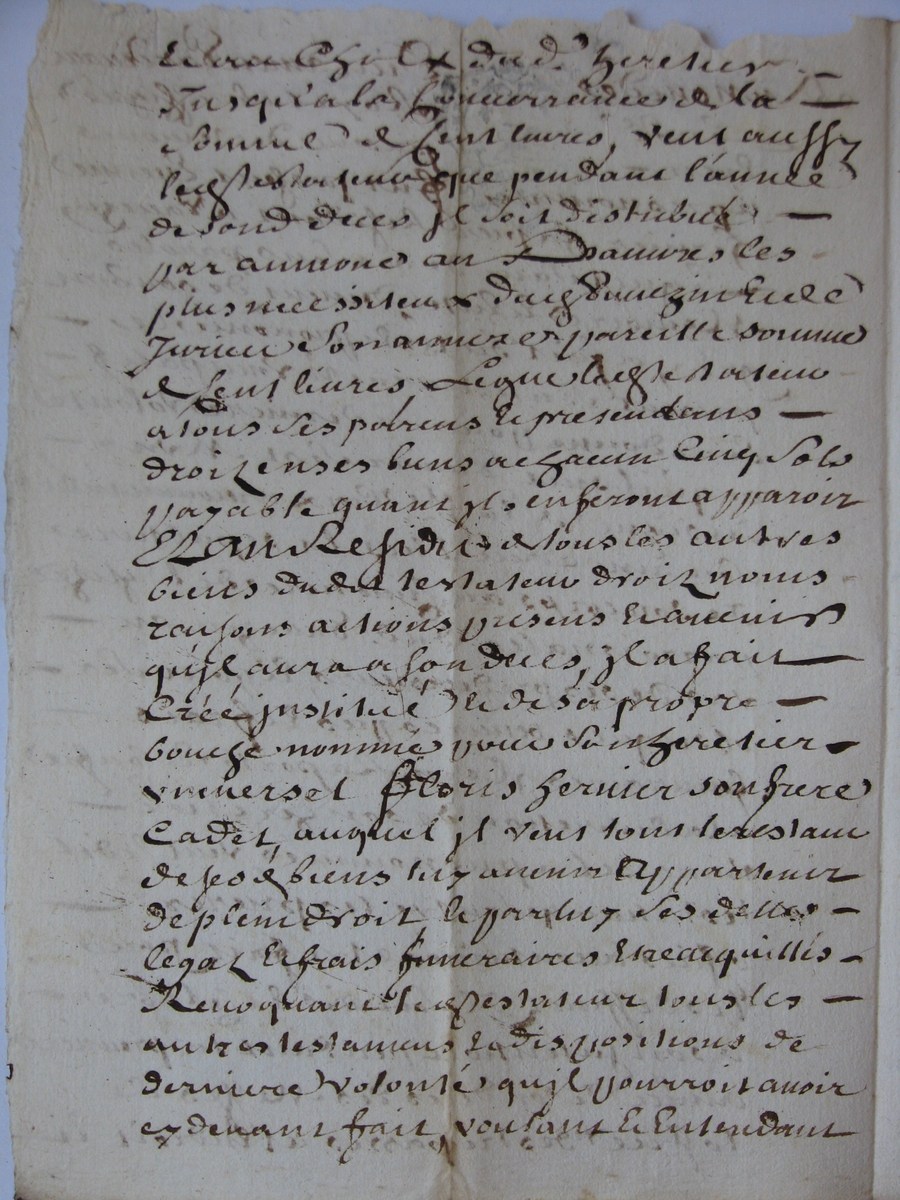 et au choix dud. heretier
Jusqu'a la Concurrance de la
Somme de Cent livres, veut aussy
led testateur que pendant l'année
de sond deces jl soit distribué
par aumone au Pauvres les
plus necessiteux dud et de
Jurieu Son annexe pareille somme
de Cent livres Legue led testateur
a tous ses parens et pretendans
droitz en ses biens a chacun Cinq Sols
payable quant jls en feront apparoir
Et au Residu de tous les autres
biens dudit testateur droitz noms
raisons actions presens et advenir
qu'jl aura a son deces, jl a fait
Créé jnstitué et de sa propre
bouche nommé pour son heretier
vniversel fleoris hernier son frere
Cadet, auquel jl veut tout le restant
de sesd biens luy avenir Appartenir
de plein droit et par luy ses dettes
legaz et frais funeraires etre acquittés
Revoquant led testateur tous les
autres testamens et dispositions de
derniere volonté qu'jl pourroit avoir
cy devant fait, voulant et Entendant